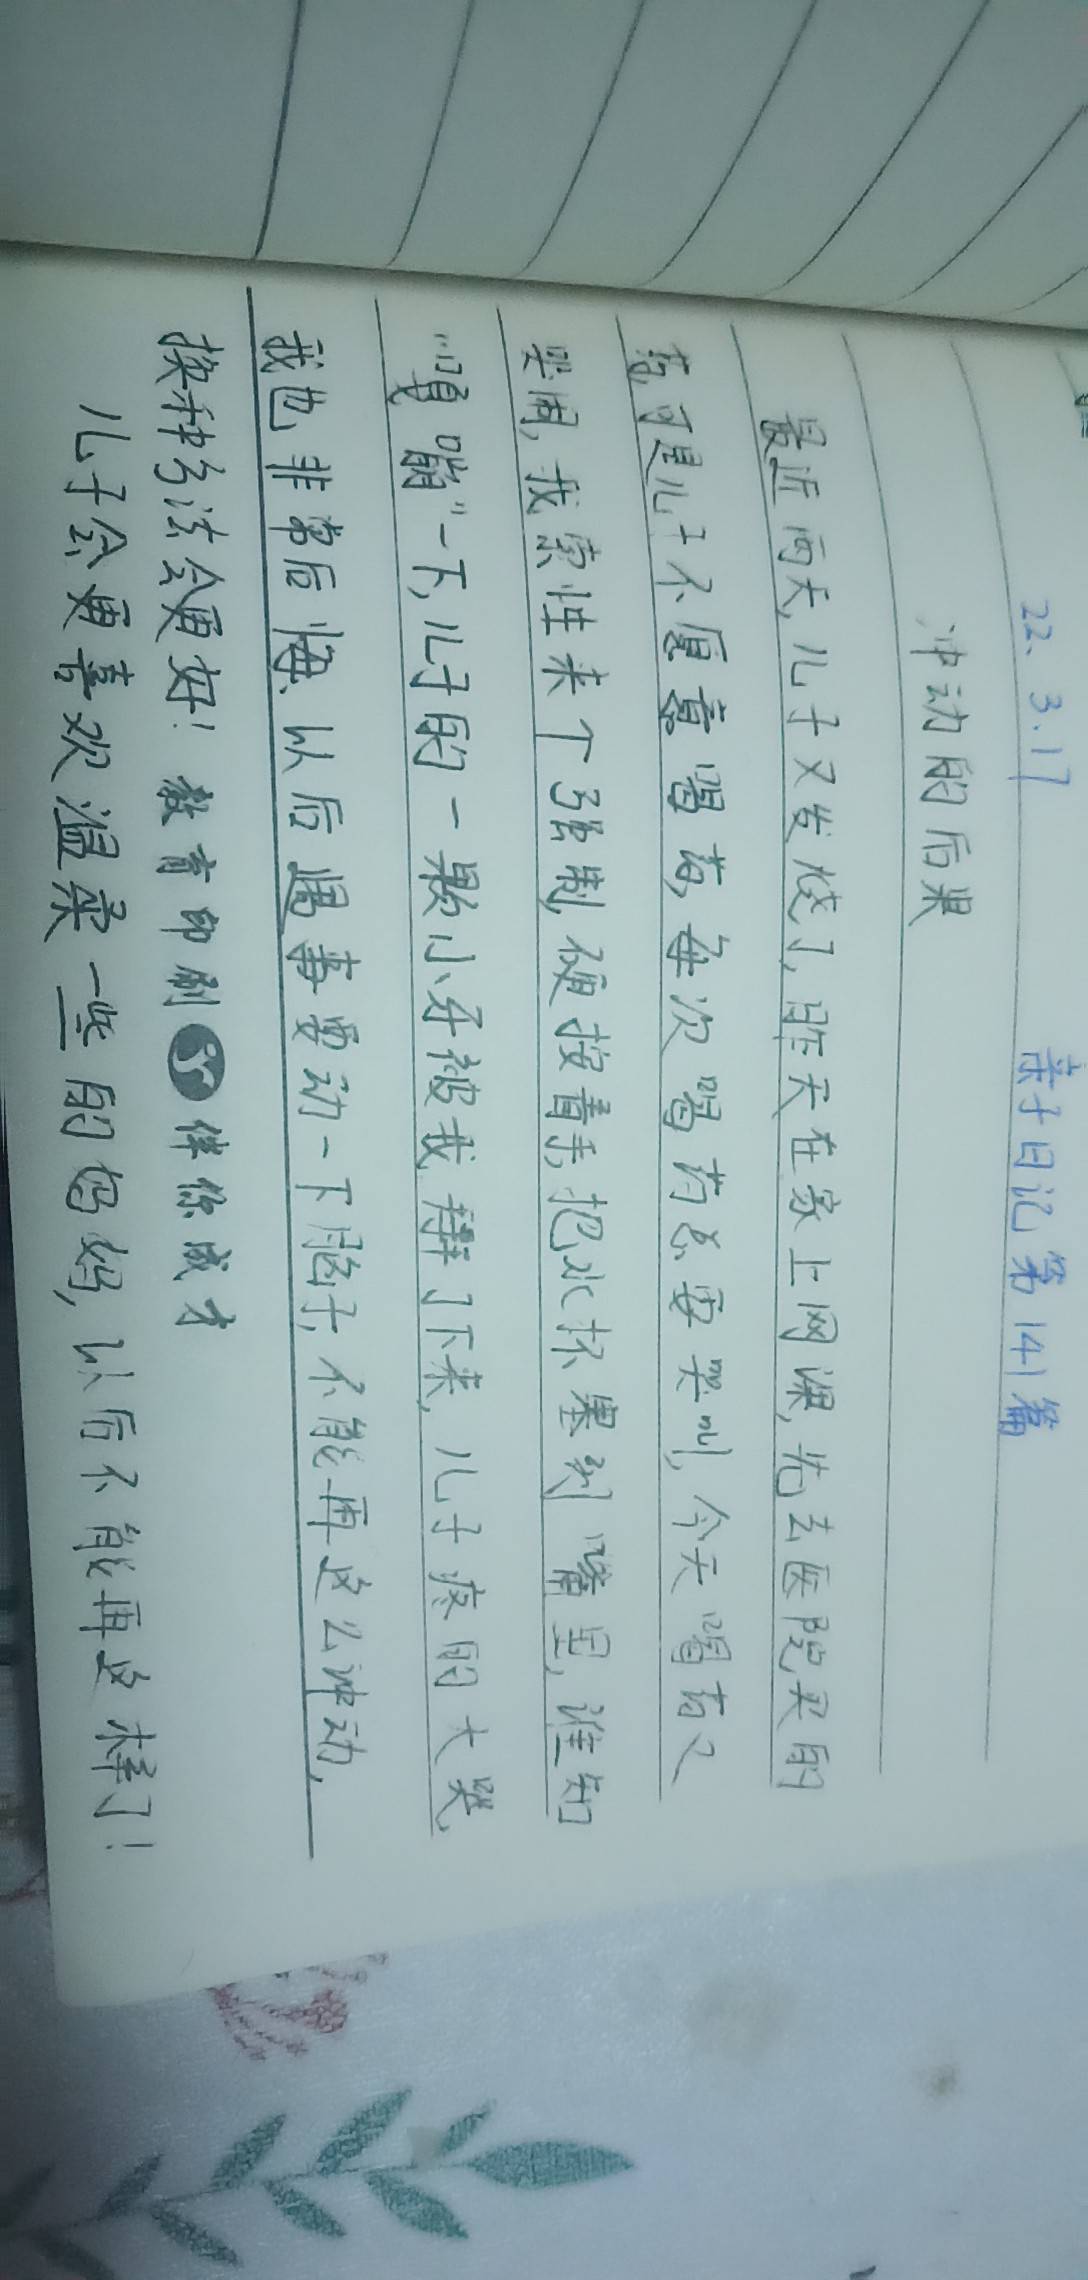 22、3.17 亲子日记第141篇
冲动的后果
最近两天,儿子又发烧了,昨天在家上网课,先去医院买的
药,可是儿子不愿意喝药,每次喝药总要哭叫,今天喝药又
哭闹,我索性来个强制,硬按着手,把水杯塞到嘴里,谁知
“一下,儿子的一颗小牙被我掰了下来,儿子疼的大哭,
我也非常后悔、以后遇事要动一下脑子,不能再这么冲动,
换种方法会更好!教育印刷 伴你成才
儿子会更喜欢温柔一些的妈妈,以后不能再这样了!